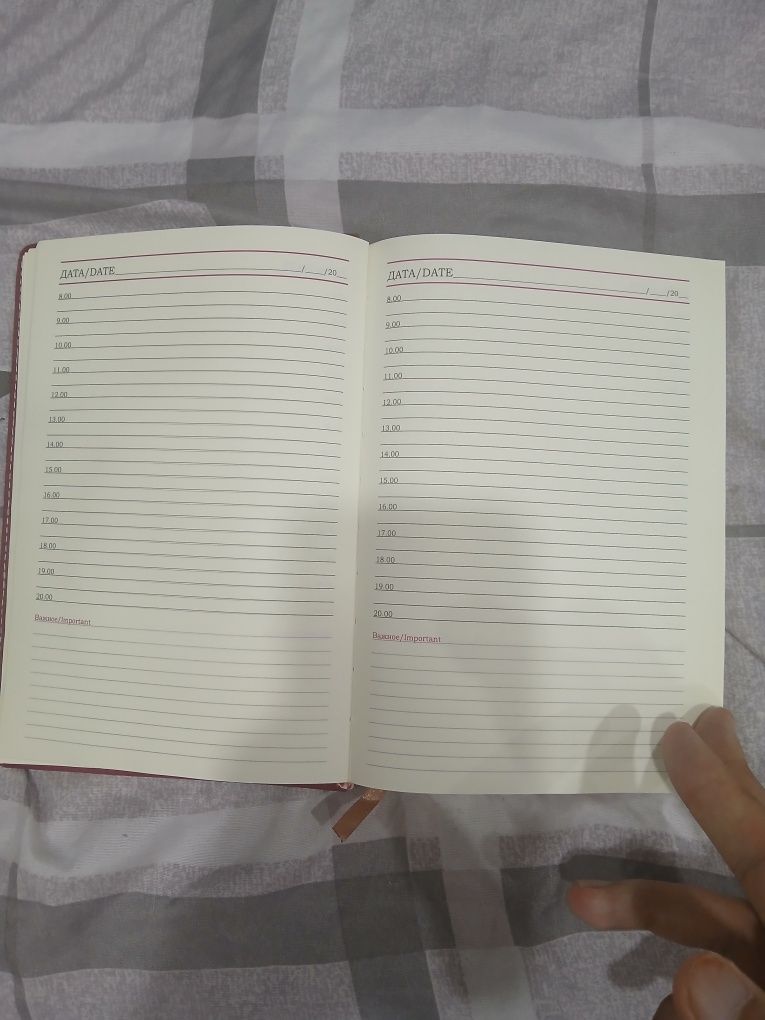 ДАТА/DATE____________/____/20__
8.00
9.00
10.00
11.00
12.00
13.00
14.00
15.00
16.00
17.00
18.00
19.00
20.00
Важное/Important
ДАТА/DATE____________/____/20__
8.00
9.00
10.00
11.00
12.00
13.00
14.00
15.00
16.00
17.00
18.00
19.00
20.00
Важное/Important